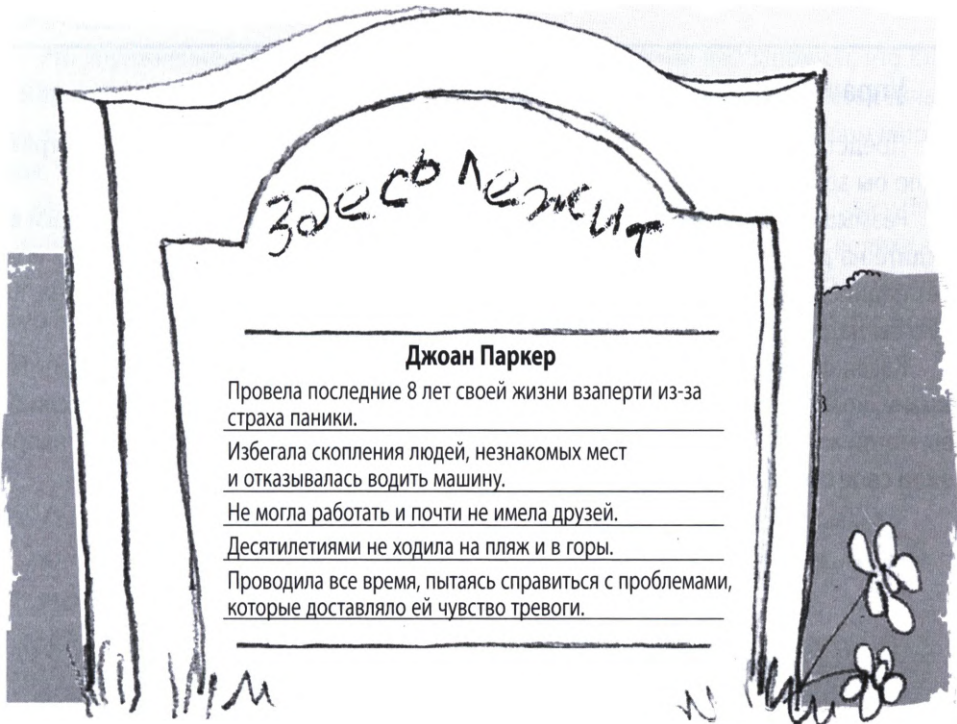 Здесь лежит
Джоан Паркер
Провела последние 8 лет своей жизни взаперти из-за
страха паники.
Избегала скопления людей, незнакомых мест
и отказывалась водить машину.
Не могла работать и почти не имела друзей.
Десятилетиями не ходила на пляж и в горы.
Проводила все время, пытаясь справиться с проблемами,
которые доставляло ей чувство тревоги.